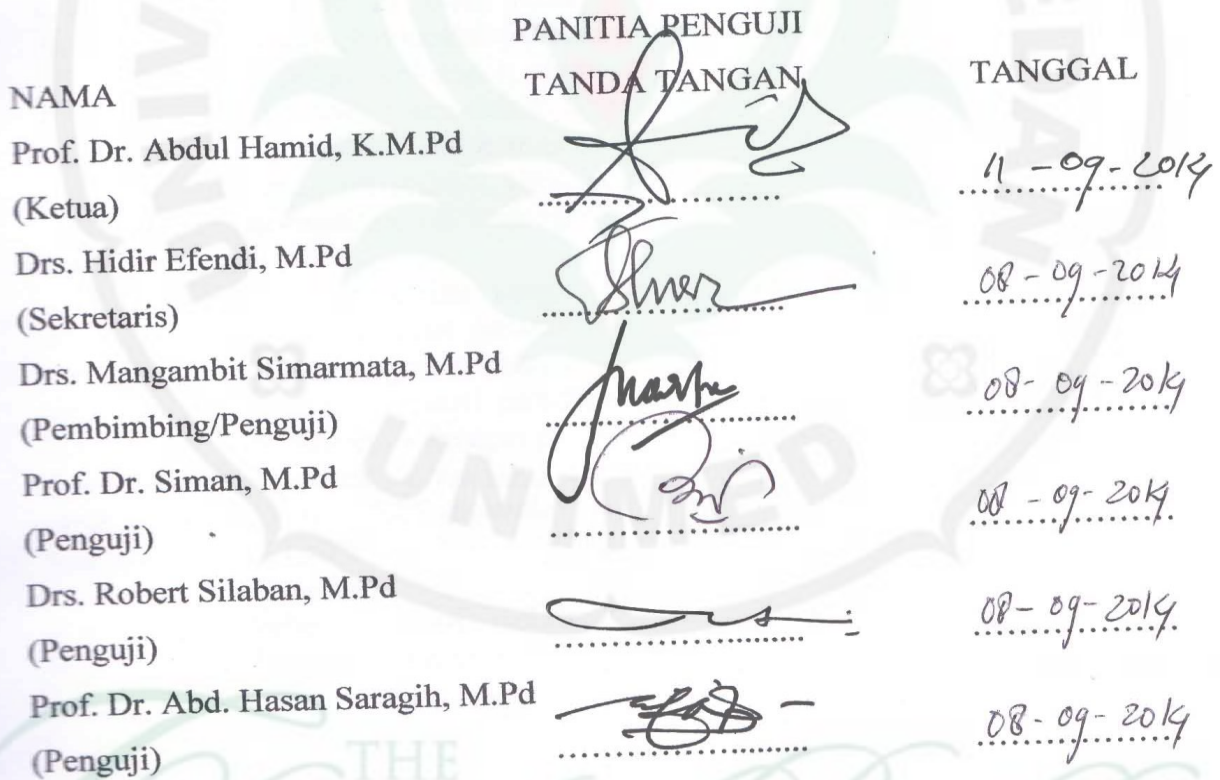 PANITIA PENGUJI
NAMA TANDA TANGAN TANGGAL
Prof. Dr. Abdul Hamid, K.M.Pd
(Ketua) 11 - 09 - 2014
Drs. Hidir Efendi, M.Pd
(Sekretaris) 08 - 09 - 2014
Drs. Mangambit Simarmata, M.Pd
(Pembimbing/Penguji) 08 - 09 - 2014
Prof. Dr. Siman, M.Pd
(Penguji) 08 - 09 - 2014
Drs. Robert Silaban, M.Pd
(Penguji) 08 - 09 - 2014
Prof. Dr. Abd. Hasan Saragih, M.Pd
(Penguji) 08 - 09 - 2014
UNIMED
THE